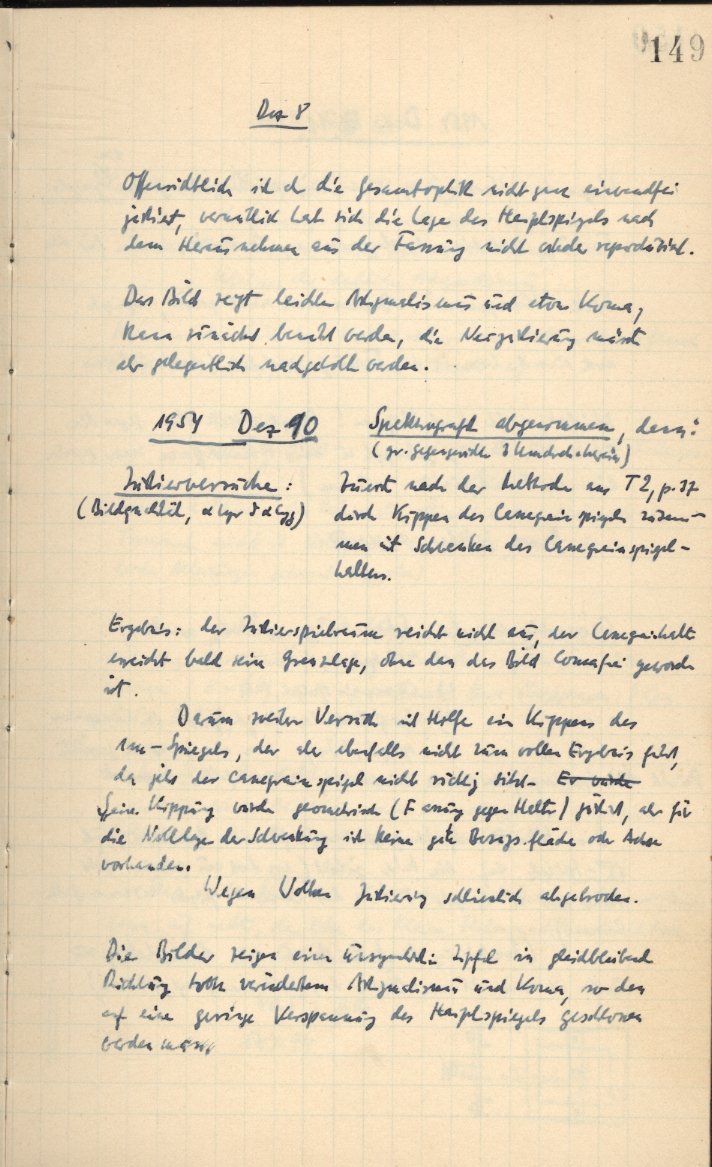 149
Dez 8
Offensichtlich ist doch die Gesamtoptik nicht ganz einwandfrei
justiert, vermutlich hat sich die Lage des Hauptspiegels nach
dem Herausnehmen aus der Fassung nicht wieder reproduziert.
Das Bild zeigt leichten Astigmatismus und etwas Koma,
kann zunächst benutzt werden, die Neujustierung müsste
aber gelegentlich nachgeholt werden.
1954 Dez 10 Spektrograph abgenommen, dann:
Justierversuche: Zuerst nach der Methode aus T2, p. 37
(Bildqualität, α Lyr δ α Cyg) durch Kippen des Cassegrainspiegels zusam-
men mit Schwenken des Cassegrainspiegel-
halters.
Ergebnis: der Justierspielraum reicht nicht aus, der Cassegrainhalter
erreicht bald seine Grenzlage, ohne dass das Bild komafrei geworden
ist.
Darum weiterer Versuch mit Hilfe ein Kippens des
1m-Spiegels, der aber ebenfalls nicht zum vollen Ergebnis führt,
da jetzt der Cassegrainspiegel nicht richtig sitzt. Er wurde
Seine Kippung wurde geometrisch (Fassung gegen Halter) justiert, aber für
die Nullage der Schwenkung ist keine gute Bezugsfläche oder Achse
vorhanden.
Wegen Wolken Justierung schliesslich abgebrochen.
Die Bilder zeigen einen Zipfel in gleichbleibender
Richtung trotz verändertem Astigmatismus und Koma, so dass
auf eine geringe Verspannung des Hauptspiegels geschlossen
werden muss.